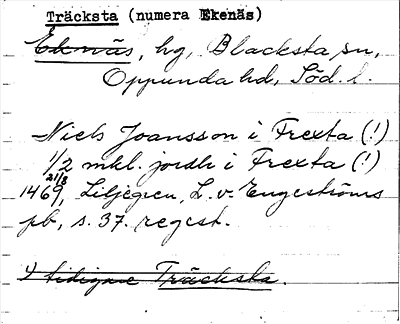 Träcksta (numera Ekenäs)
Eknäs, hg, Blacksta sn,
Oppunda hd, Söd. l.
Niels Joansson i Frexta (!)
1/2 mkl. jordh i Frexta (!)
21/3
1469, Liljegren, L. v. Engeströms
pb, s. 37. regest.
tidigare Träcksta.